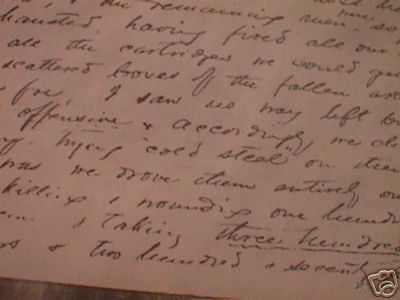 the remaining men, so
hausted, having fired all our
all the cartridges we could
scattered boxes of the fallen
I saw no way left
offensive & accordingly we ch
trying "cold steel" on them
we drove them entirely ou
killing & wounding one hundre
& taking three hundred
rs & two hundred & seventy
eBay